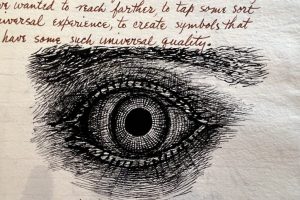 wanted to reach farther to tap some sort
universal experience, to create symbols that
have some such universal quality.